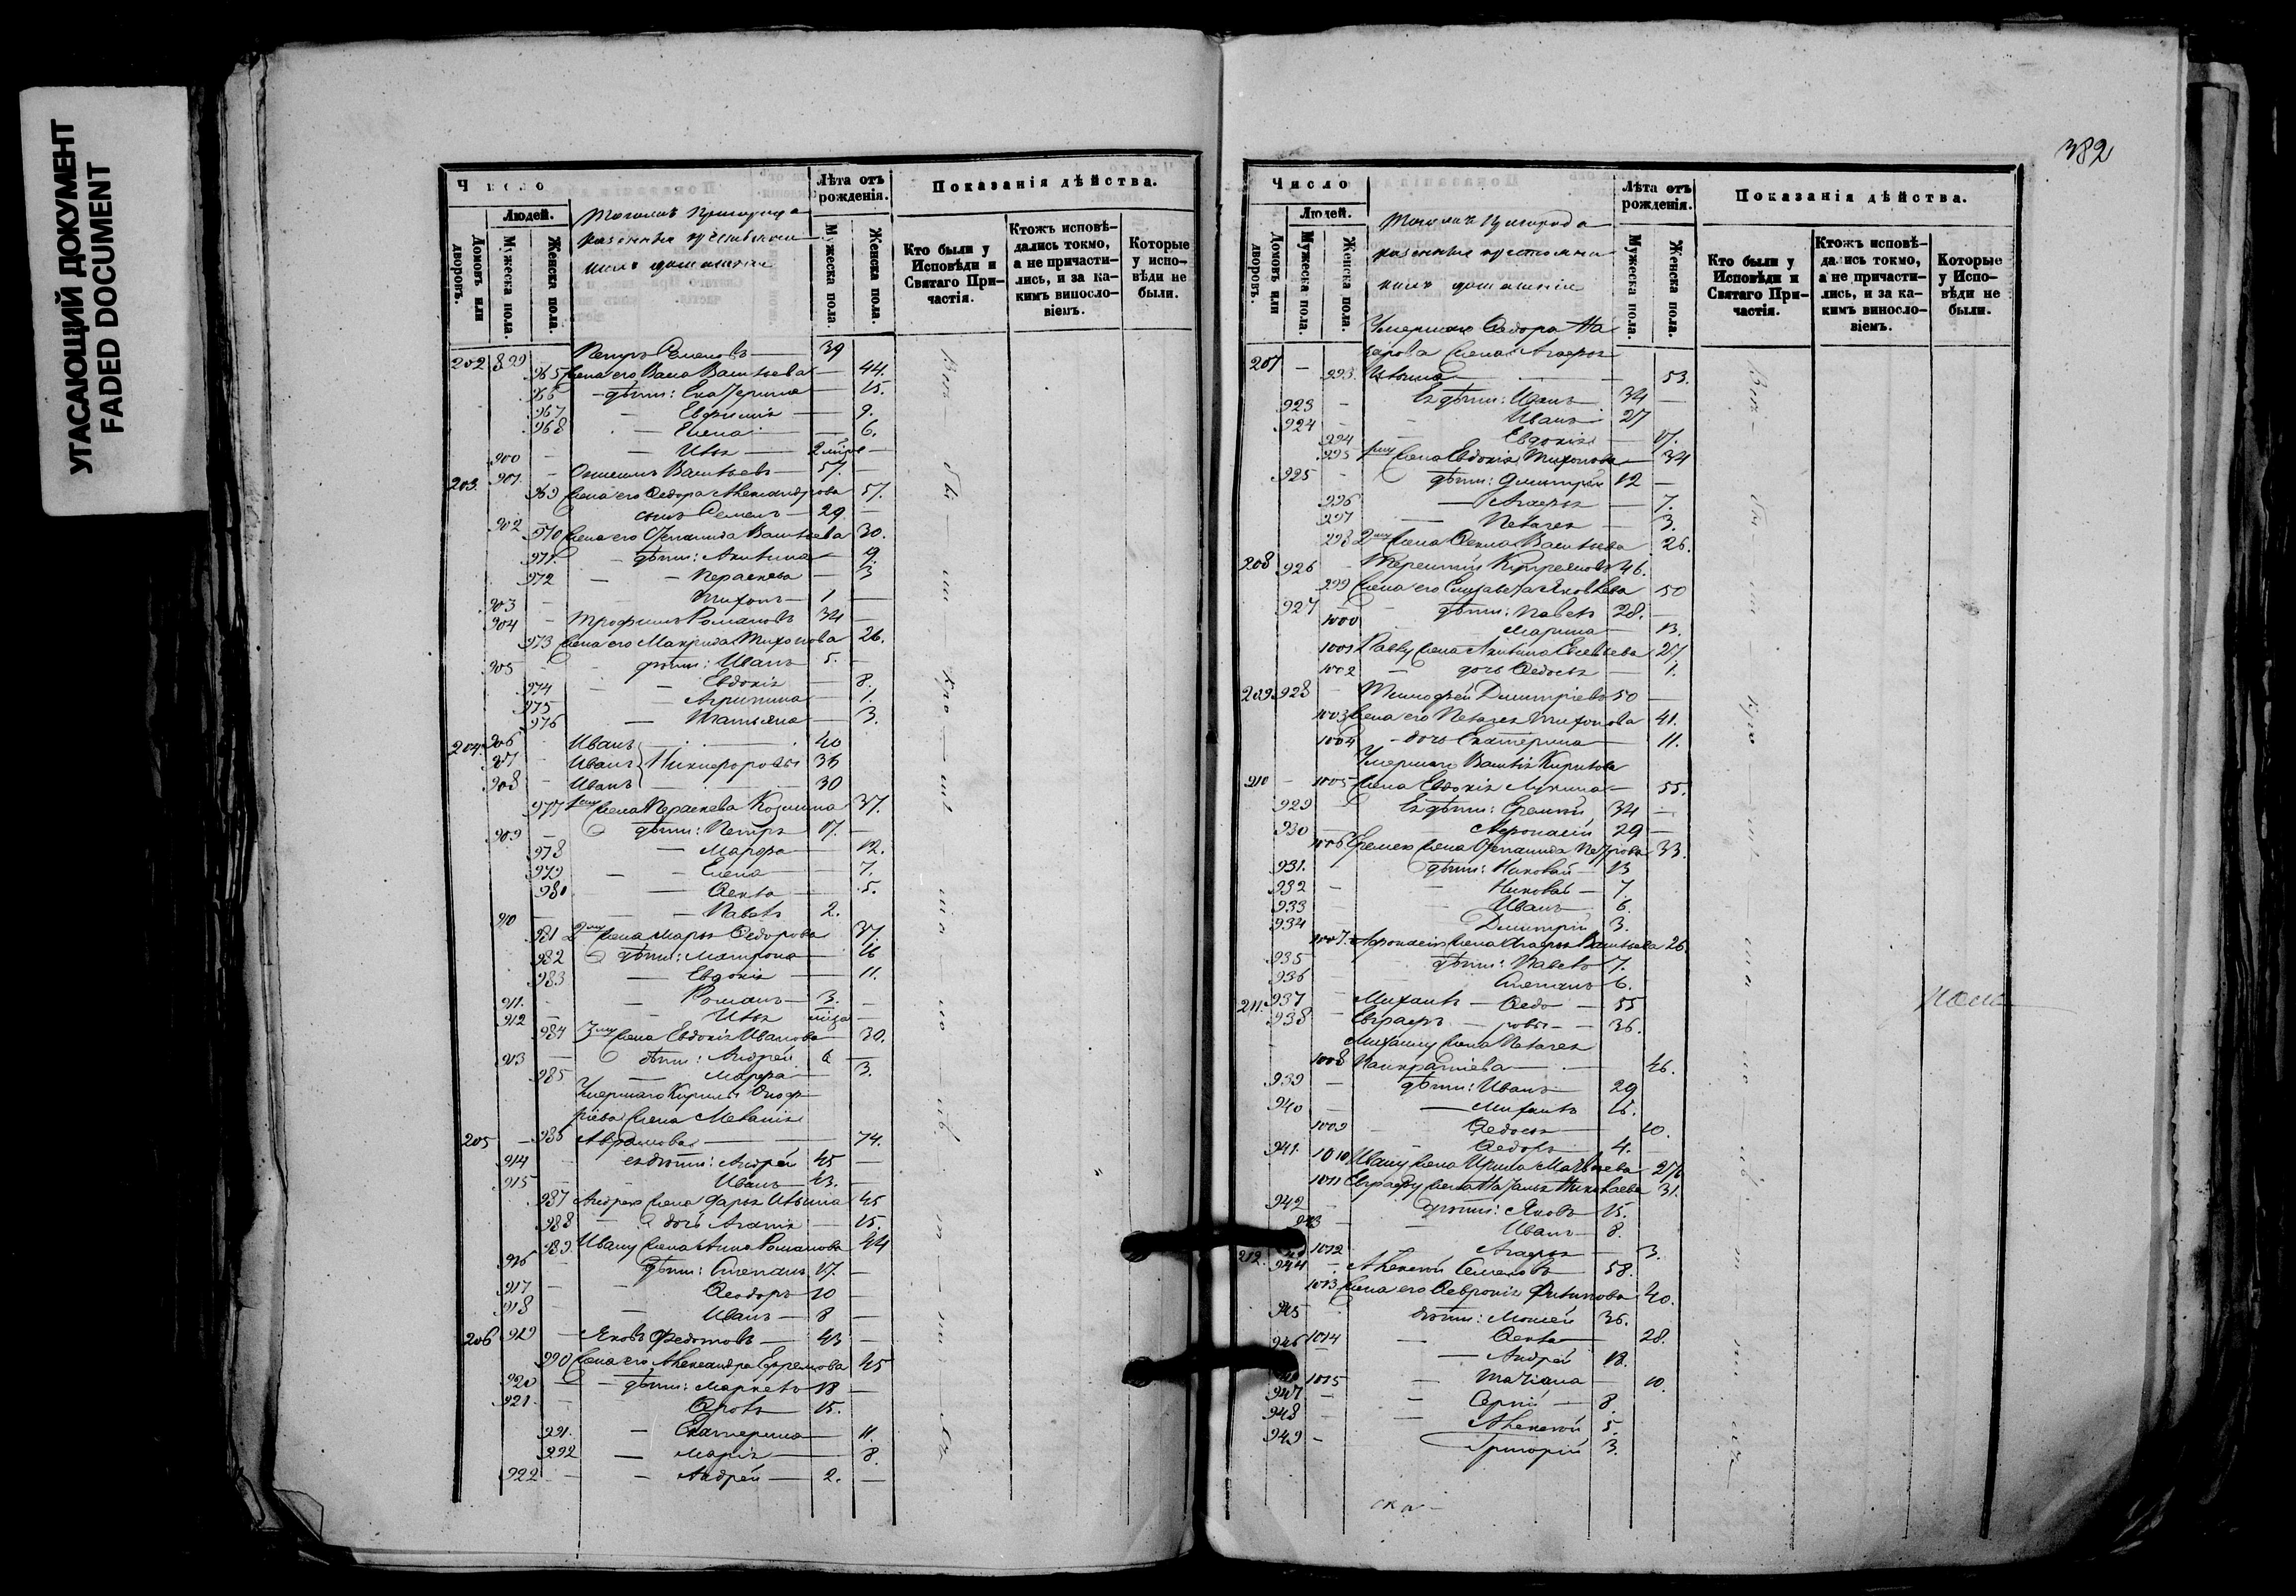 УГАСАЮЩИЙ ДОКУМЕНТ
FADED DOCUMENT
382
Число
Лѣта отъ рожденія.
Показанія дѣйства.
Людей.
Домовъ или дворовъ.
Мужеска пола.
Женска пола.
Мужеска пола.
Женска пола.
Кто были у Исповѣди и Святаго Причастія.
Ктожъ исповѣдались токмо, а не причастились, и за какимъ винословіемъ.
Которые у исповѣди не были.
202 899 Петръ Семеновъ 39
965 Жена его Васса Васильева 44.
966 дѣти: Екатерина 15.
967 Евфимія 9.
968 Елена 6.
900 Илья
203. 901. Васильевъ 57.
969 Жена его Федора Александрова 57.
902 сынъ Семенъ 29
970 Жена его Степанида Васильева 30.
971. дѣти: Акилина 9.
972 Параскева 3
903 Тихонъ 1
904 Трофимъ Романовъ 34
973 Жена его Макрида Тихонова 26.
905 дѣти: Иванъ 5.
974 Евдокія 8.
975 Агрипина 1.
976 Татьяна 3.
204. 906 Иванъ 40
907 Иванъ Никифоровы 36
908 Иванъ 30
977 Жена Параскева Козмина 37.
909 дѣти: Петръ 17.
978 Марфа 12.
979 Елена 7.
980 Фекла 5.
910 Павелъ 2.
981 Жена Марья Федорова 37.
982 дѣти: Матрона 16
983 Евдокія 11.
911. Романъ 3.
912 Илья
984 Жена Евдокія Иванова 30.
913 дѣти: Андрей 6
985 Марфа 3.
Умершаго Кирилы
Жена Меланія
205 986 Аврамова 74.
914 ея дѣти: Андрей 45
915 Иванъ 43.
987 Андрею Жена Дарья Ильина 45
988 дочь Агапія 15.
989. Ивану Жена Анна Романова 44
916 дѣти: Степанъ 17.
917 Феодоръ 10
918 Иванъ 8
206 919 Яковъ Федотовъ 43
990 Жена его Александра Ефремова 45
920 дѣти: Маркелъ 18
921. Фролъ 15.
991. Екатерина 11.
992 Марія 8.
922 Андрей 2.
Число
Лѣта отъ рожденія.
Показанія дѣйства.
Людей.
Домовъ или дворовъ.
Мужеска пола.
Женска пола.
Мужеска пола.
Женска пола.
Кто были у Исповѣди и Святаго Причастія.
Ктожъ исповѣдались токмо, а не причастились, и за какимъ винословіемъ.
Которые у Исповѣди не были.
Умершаго Федора На
зарова Жена Агафья
207 993. Ильина 53.
923 Ея дѣти: Иванъ 34
924 Иванъ 27
994 Евдокія 17.
995 Жена Евдокія Тихонова 34
925 дѣти: Димитрій 12
996 Агафья 7.
997 Пелагея 3.
998 Жена Фекла Васильева 26.
208 926 Терентій 46.
999 Жена его Елизавета Яковлева 50
927 дѣти: Павелъ 28.
1000 Марина 13.
1001 Павлу Жена Акилина 27
1002 дочь Федосья 1.
209 928 Тимофей Димитріевъ 50
1003 Жена его Пелагея Тихонова 41.
1004 дочь Екатерина 11.
Умершаго Василія Кирилова
210 1005 Жена Евдокія Лукина 55.
929 Ея дѣти: Еремей 34
930 Афонасій 29
1006 Еремею Жена Степанида Петрова 33.
931. дѣти: Николай 13
932 Николай 7
933 Иванъ 6.
934 Димитрій 3.
1007. Афонасію Жена Агафья Васильева 26.
935 дѣти: Павелъ 7.
936 Степанъ 6.
211. 937 Михаилъ Федо 55
938 Евграфъ ровы 36.
Михаилу Жена Пелагея
1008 Панкратіева 46.
939 дѣти: Иванъ 29
940 Михаилъ 16.
1009 Федосья 10.
941. Федоръ 4.
1010 Ивану Жена Ирина Матвѣева 27
1011 Евграфу Жена Наталья Николаева 31.
942 дѣти: Яковъ 15.
943 Иванъ 8.
1012 Агафья 3.
212. 944 Алексей Семеновъ 58.
1013 Жена его Февронія Филипова 40.
945 дѣти: Моисей 36.
1014 Фекла 28.
946 Андрей 18.
1015 Татіана 10.
947 Сергій 8.
948 Алексей 5.
949 Григорій 3.